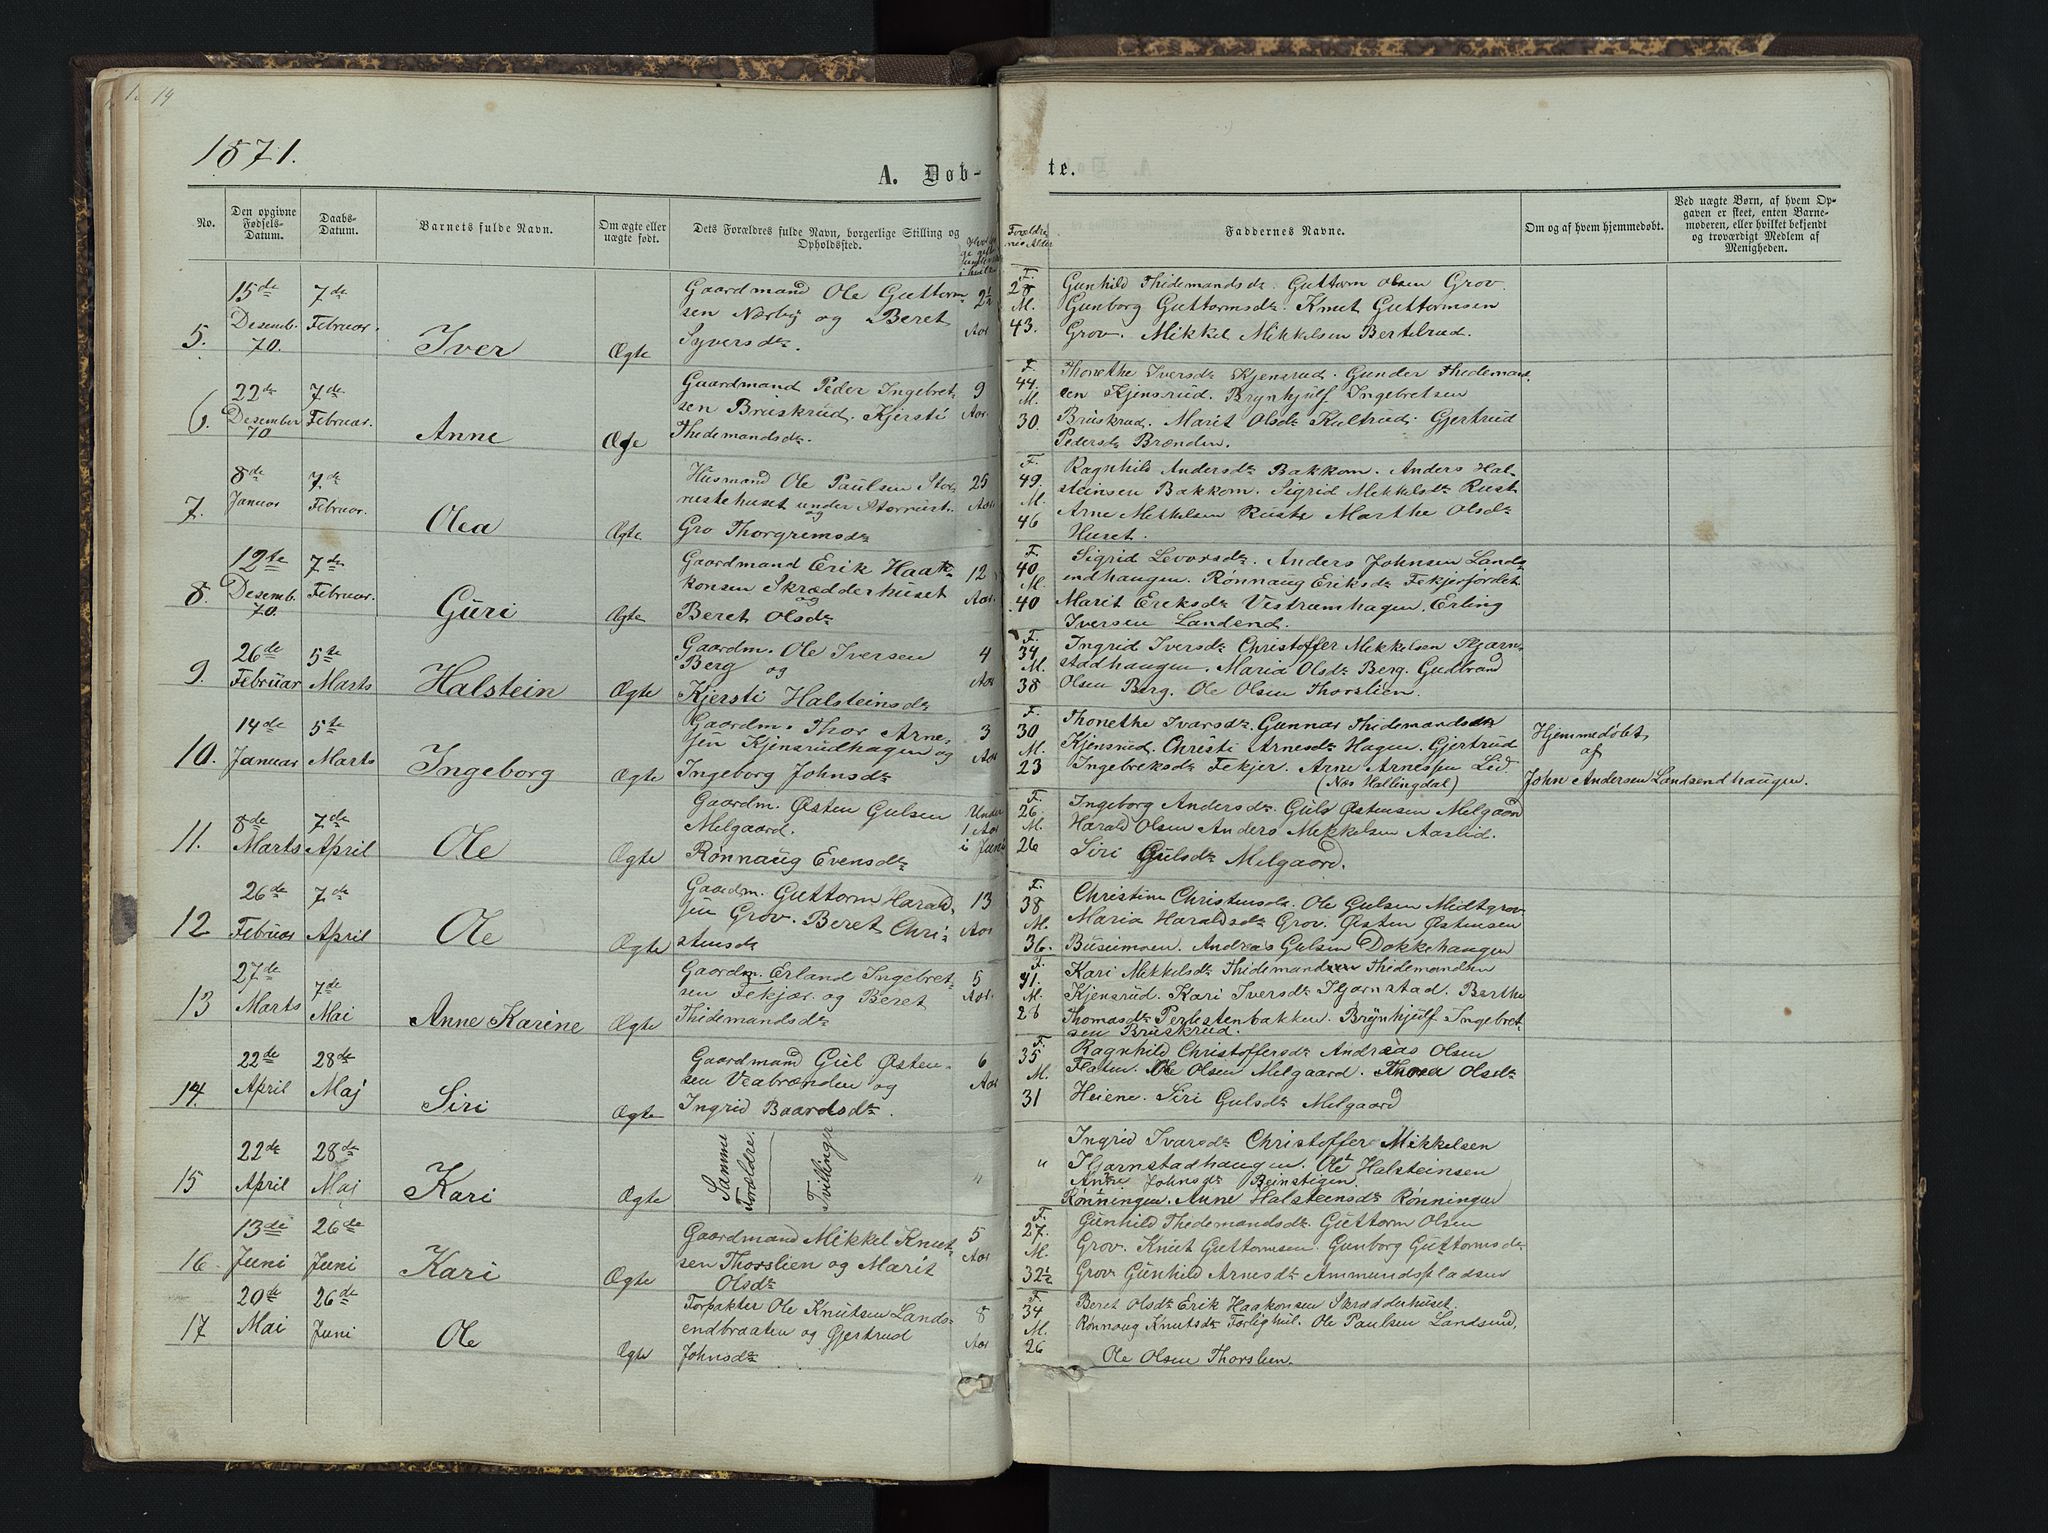 19
1871.
A. Døb-
te.
No.
Den opgivne Fødsels-Datum.
Daabs-Datum.
Barnets fulde Navn.
Om ægte eller uægte født.
Dets Forældres fulde Navn, borgerlige Stilling og Opholdssted.
Forældre
Faddernes Navne.
Om og af hvem hjemmedøbt.
Ved uægte Børn, af hvem Opgaven er skeet, enten Barnemoderen, eller hvilket bekjendt og troværdigt Medlem af Menigheden.
5. 15de Desemb. 70. 7de Februar. Iver Ægte
Gaardmand Ole Guttorm-
sen Nørby og Beret
Syversdr.
2½ Aar
F. 28 M. 43.
Gunhild Thidemandsdr. Guttorm Olsen Grov.
Gunborg Guttormsdr. Knut Guttormsen
Grov. Mikkel Mikkelsen Bertilrud.
6. 22de Desember 70 7de Februar. Anne Ægte
Gaardmand Peder Ingebret-
sen Bruskrud. Kjersti
Thidemandsdr.
9 Aar.
F. 44. M. 30.
Thonethe Iversdr Kjensrud. Gunder Thidemand-
sen Kjensrud. Brynhjulf Ingebretsen
Bruskrud. Marit Olsdr Kultrud. Gjertrud
Pedersdr Brænden.
7. 8de Januar 7de Februar. Olea Ægte
Husmand Ole Paulsen Stor-
rustehuset under Storrust.
og
Gro Thorgrimsdr
25 Aar
F. 49. M. 46
Ragnhild Andersdr Bakkom. Anders Hal-
steinsen Bakkom. Sigrid Mikkelsdr Rust
Arne Mikkelsen Ruste Marthe Olsdr
Huset.
8. 12te Desemb. 70. 7de Februar. Guri Ægte
Gaardmand Erik Haak-
konsen Skrædderhuset
og
Beret Olsdr
12 Aar.
F. 40 M. 40
Sigrid Levorsdr. Anders Johnsen Lands-
endhaugen. Rønnaug Eriksdr Fekjerfordet
Marit Eriksdr Vestrumhagen. Erling
Iversen Landend.
9. 26de Februar 5te Marts Halstein Ægte
Gaardm. Ole Iversen
Berg og
Kjersti Halsteinsdr
4 Aar
F. 34 M. 38
Ingrid Iversdr Christoffer Mikkelsen Hjarn-
stadhaugen. Maria Olsdr Berg. Gudbrand
Olsen Berg. Ole Olsen Thorslien.
10. 14de Januar 5te Marts Ingeborg Ægte
Gaardm. Thor Arne-
sen Kjensrudhagen og
Ingeborg Johnsdr
3 Aar
F. 30 M. 23
Thonethe Ivarsdr. Gunnar Thidemandsdr
Kjensrud. Christi Arnesdr Hagen. Gjertrud
Ingebreksdr Fekjer. Arne Arnesen Lid.
(Næs Hallingdal)
Hjemmedøbt
af
John Andersen Landsendhaugen.
11. 8de Marts 7de April Ole Ægte
Gaardm. Østen Gulsen
Melgaard.
Rønnaug Evensdr
Under 1 Aar
F. 26 M. 26
Ingeborg Andersdr. Guls Østensen Melgaard
Harald Olsen Anders Mikkelsen Aaslid.
Siri Gulsdr Melgaard.
12 26de Februar 7de April Ole Ægte
Gaardm. Guttorm Harald-
sen Grov. Beret Chri-
stensdr
13 Aar
F. 38 M. 36.
Christine Christensdr. Ole Gulsen Midtgrov
Maria Haraldsdr Grov. Østen Østensen
Busumoen. Andreas Gulsen Dokkehaugen
13 27de Marts 7de Mai Anne Karine Ægte
Gaardm. Erland Ingebret-
sen Fekjær. og Beret
Thidemandsdr
5 Aar.
F. 41. M. 28
Kari Mikkelsdr Thidemand Thidemandsen
Kjensrud. Kari Iversdr Hjarnstad. Berthe
Thomasdr Perlestenbakken. Brynhjulf Ingebret-
sen Bruskrud.
14. 22de April 28de Maj Siri Ægte
Gaardmand Gul Østen-
sen Veabrænden og
Ingrid Baardsdr.
6 Aar
F. 35 M. 31
Ragnhild Christoffersdr Andreas Olsen
Flaten. Ole Olsen Melgaard. Thora Olsdr
Heiene. Siri Gulsdr Melgaard
15 22de April 28de Maj Kari Ægte
Samme Forældre. Tvillinger
"
"
Ingrid Ivarsdr Christoffer Mikkelsen
Hjarnstadhaugen. Ole Halsteinsen
Anne Johnsdr Beinstigen.
Rønningen. Anne Halsteensdr Rønningen
16 13de Juni 26de Juni Kari Ægte
Gaardmand Mikkel Knut-
sen Thorslien og Marit
Olsdr
5 Aar
F. 27. M. 32½
Gunhild Thidemandsdr. Guttorm Olsen
Grov. Knut Guttormsen. Gunborg Guttormsdr
Grov Gunhild Arnesdr Ammundspladsen
17 20de Mai 26de Juni Ole Ægte
Forpakter Ole Knutsen Lands-
endbraaten og Gjertrud
Johnsdr
8 Aar
F. 34 M. 26
Beret Olsdr Erik Haakonsen Skrædderhuset.
Rønnaug Knutsdr Farlighul. Ole Paulsen Landsend,
Ole Olsen Thorslien.